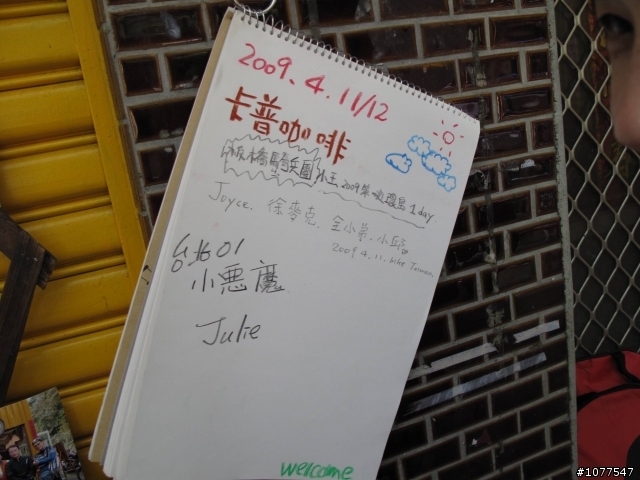 2009.4.11/12
卡普咖啡
板橋騎兵團 小王 2009第一次環島 1day
Joyce. 徐麥克. 金小弟. 小路
2009.4.11. bike Taiwan.
小悪魔
Julie
welcome
#1077547